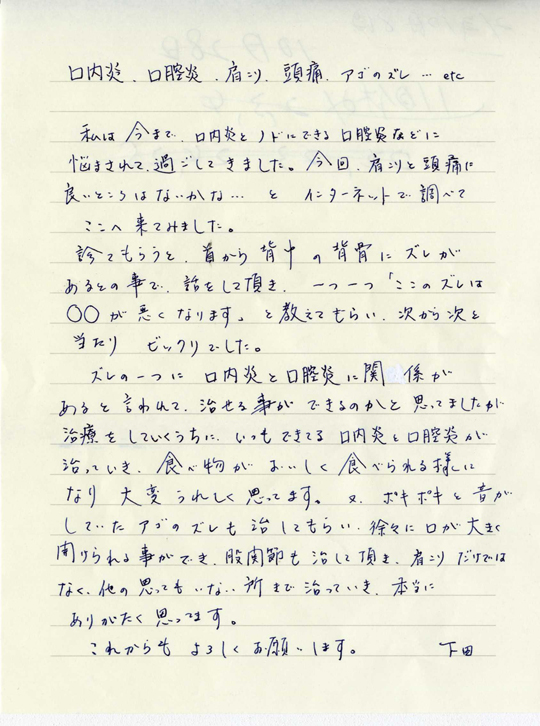 口内炎、口腔炎、肩こり、頭痛、アゴのズレ … etc
私は今まで、口内炎とノドにできる口腔炎などに
悩まされて過ごしてきました。今回、肩こりと頭痛に
良いところはないかな… と インターネットで調べて
ここへ来てみました。
診てもらうと、首から背中の背骨にズレが
あるとの事で、話をして頂き、一つ一つ「ここのズレは
〇〇が悪くなります」と教えてもらい、次から次と
当たり ビックリでした。
ズレの一つに 口内炎と口腔炎に関係が
あると言われて、治せる事ができるのかと思ってましたが
治療をしていくうちに、いつもできてる口内炎と口腔炎が
治っていき、食べ物がおいしく食べられる様に
なり 大変うれしく思ってます。又、ポキポキと音が
していたアゴのズレも治してもらい、徐々に口が大きく
開けられる事ができ、股関節も治して頂き、肩こりだけでは
なく、他の思ってもいない所まで治っていき、本当に
ありがたく思ってます。
これからも よろしくお願いします。 下田